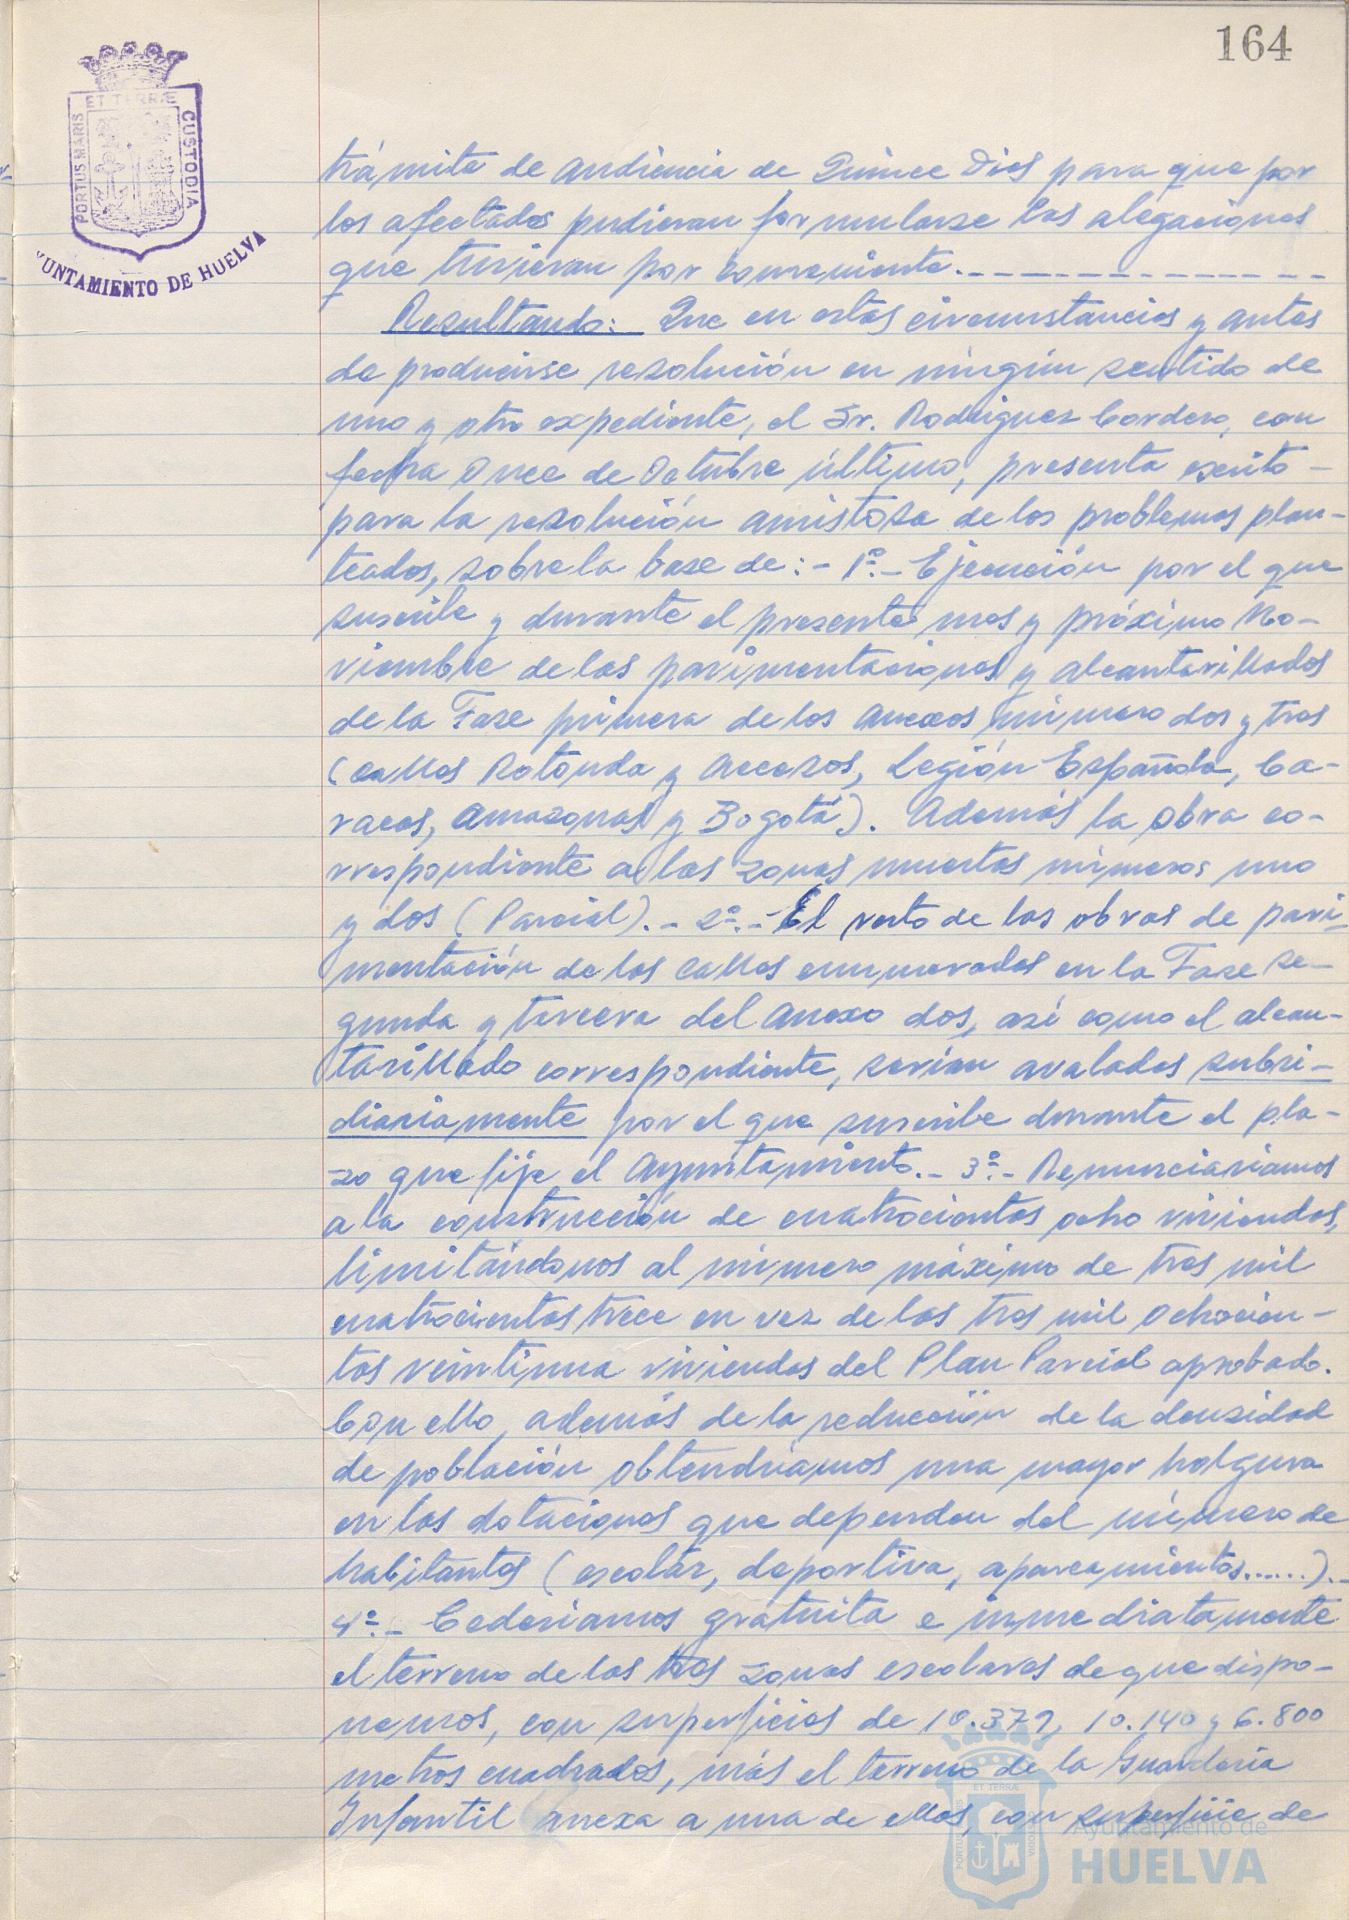 164
ET TERRÆ
PORTUS MARIS
CUSTODIA
YUNTAMIENTO DE HUELVA
trámite de audiencia de Quince Dias para que por
los afectados pudieran formularse las alegaciones
que tuvieran por conveniente.
Resultando: Que en estas circunstancias y antes
de producirse resolución en ningún sentido de
uno y otro expediente, el Sr. Rodriguez Cordero, con
fecha Once de Octubre último, presenta escrito
para la resolución amistosa de los problemas plan-
teados, sobre la base de: - 1º.- Ejecución por el que
suscribe y durante el presente mes y próximo No-
viembre de las pavimentaciones y alcantarillados
de la Fase primera de los anexos número dos y tres
(calles Rotonda y Accesos, Legión Española, Ca-
racas, Amazonas y Bogotá). Además la obra co-
rrespondiente a las zonas muertas números uno
y dos (Parcial). - 2º.- El resto de las obras de pavi-
mentación de las calles enumeradas en la Fase se-
gunda y tercera del anexo dos, así como el alcan-
tarillado correspondiente, serían avalados subsi-
diariamente por el que suscribe durante el pla-
zo que fije el Ayuntamiento. - 3º.- Renunciariamos
a la construcción de cuatrocientas ocho viviendas,
limitándonos al número máximo de tres mil
cuatrocientas trece en vez de las tres mil ochocien-
tas veintiuna viviendas del Plan Parcial aprobado.
Con ello, además de la reducción de la densidad
de población obtendríamos una mayor holgura
en las dotaciones que dependen del número de
habitantes (escolar, deportiva, aparcamientos......).-
4º.- Cederiamos gratuita e inmediatamente
el terreno de las tres zonas escolares de que dispo-
nemos, con superficies de 10.379, 10.140 y 6.800
metros cuadrados, más el terreno de la Guardería
Infantil anexa a una de ellas, con superficie de
Ayuntamiento de
HUELVA